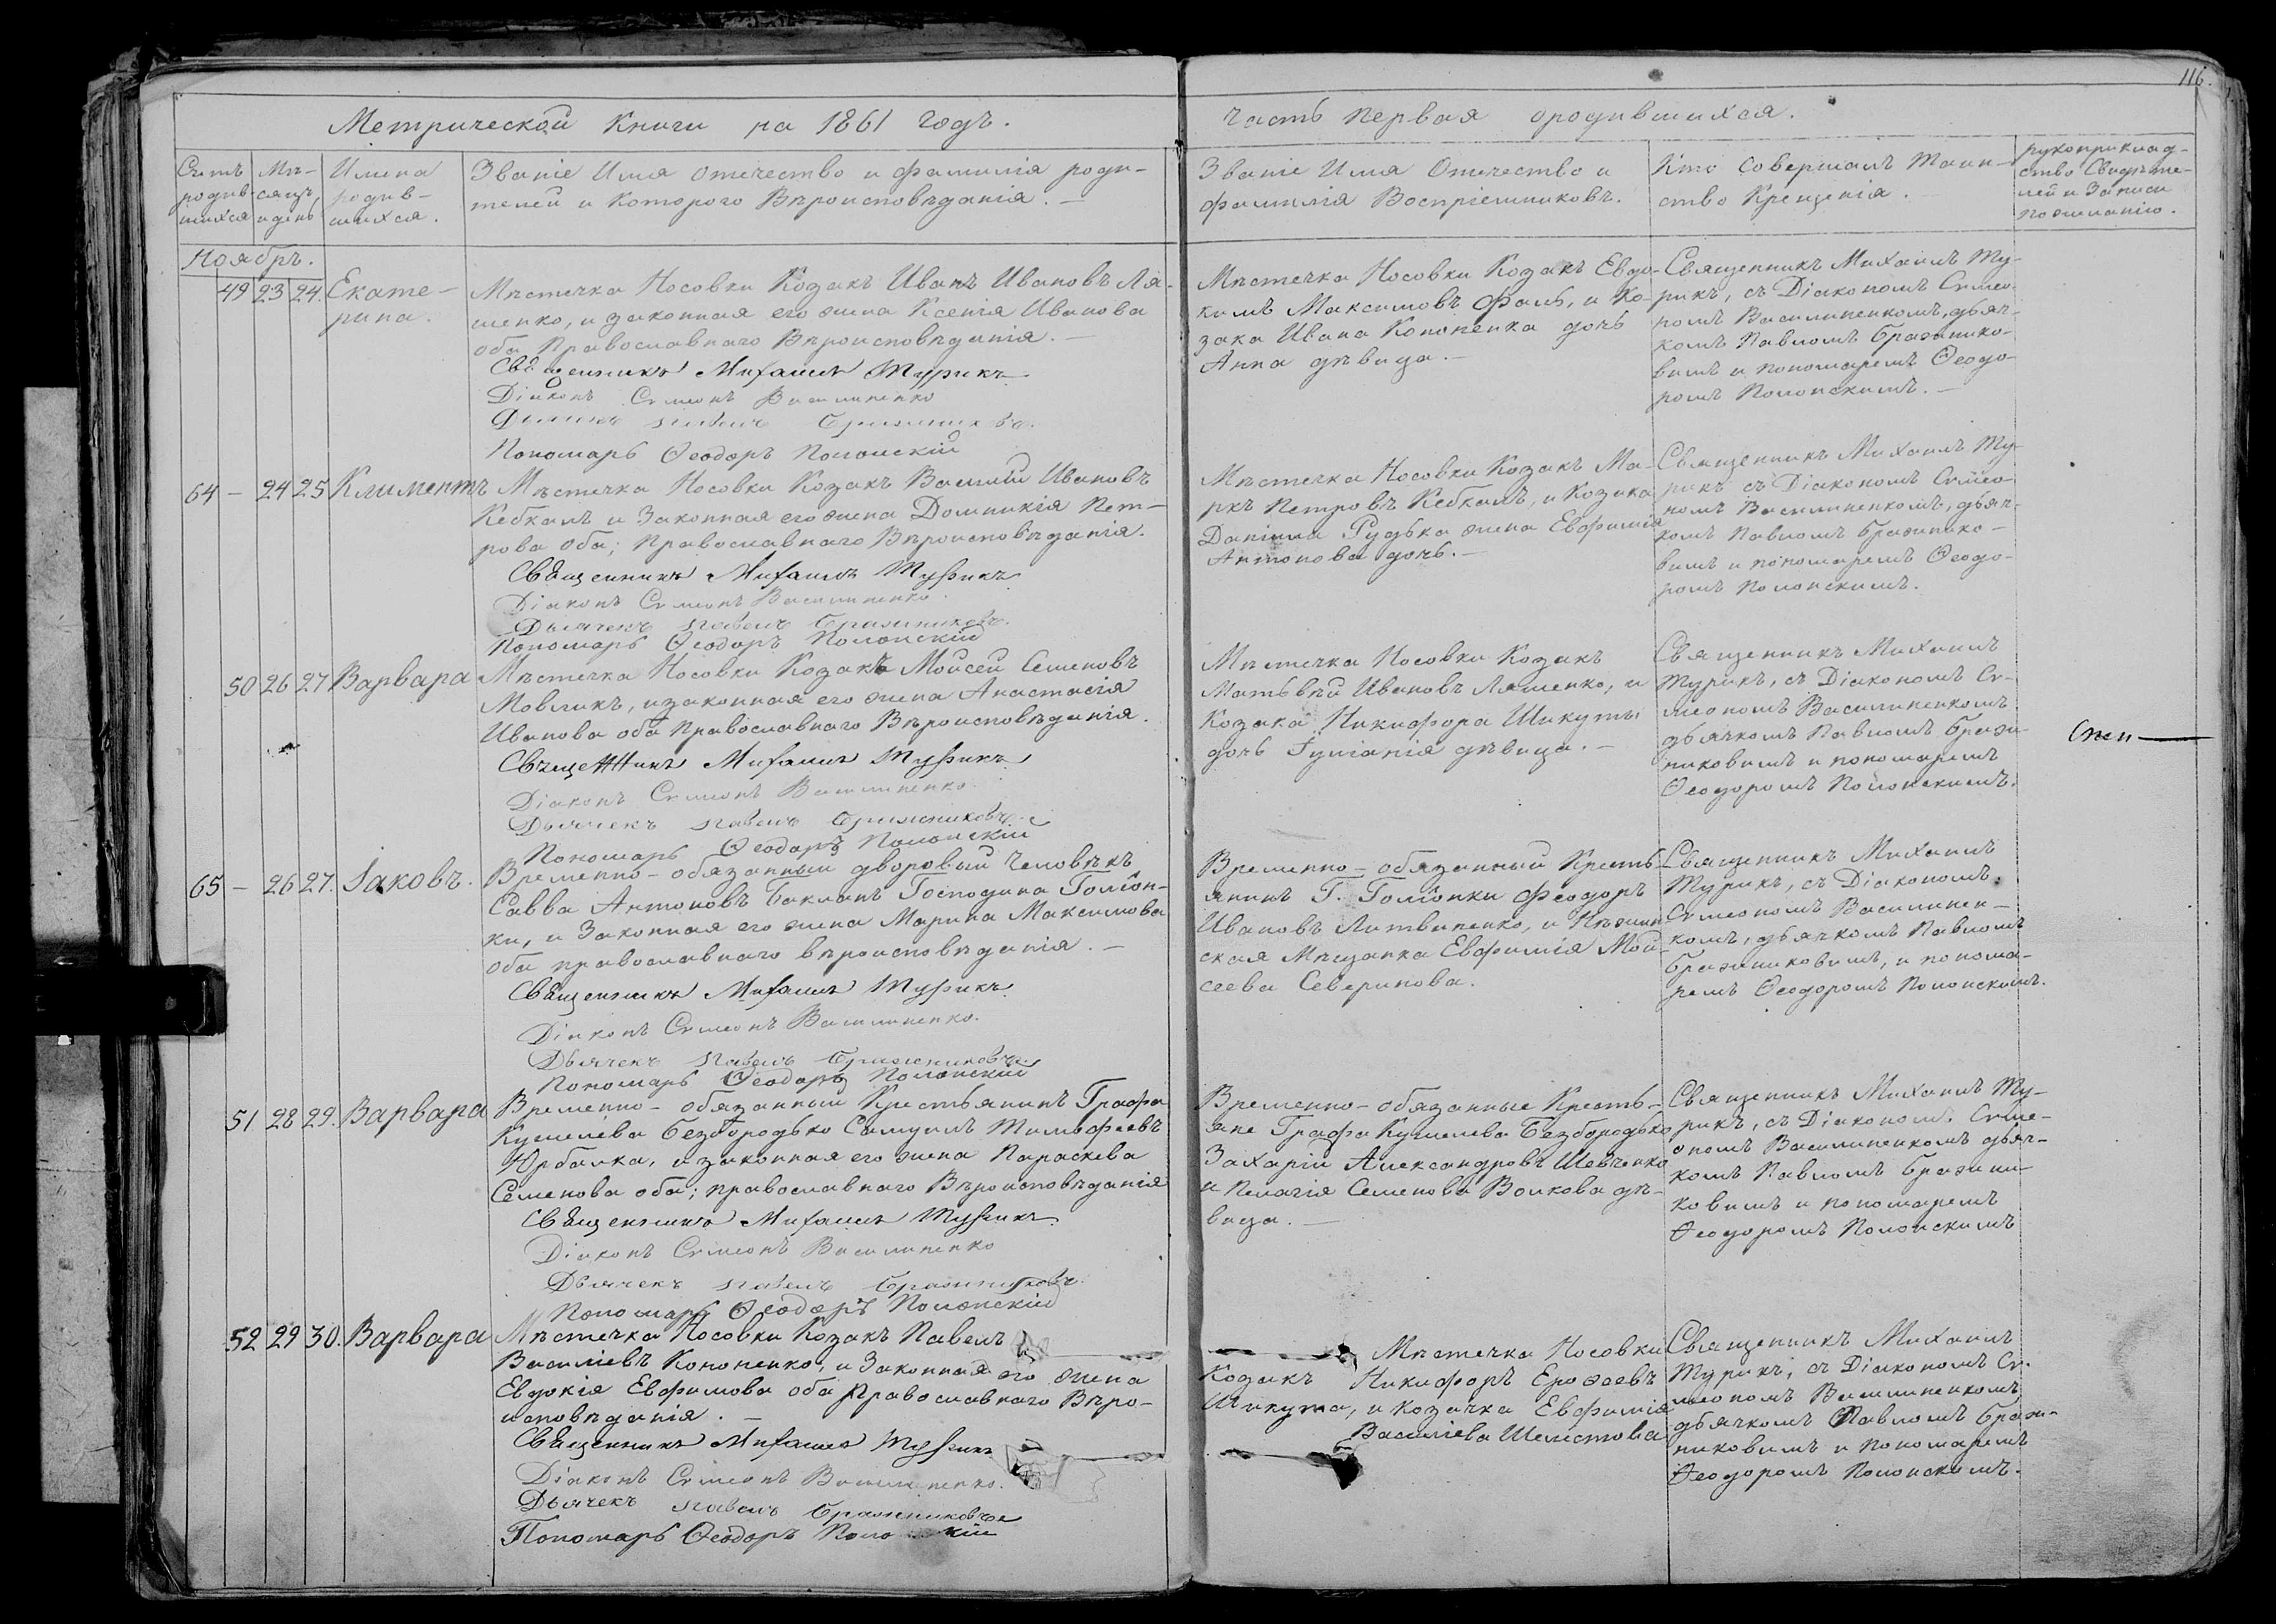 116.
Метрической Книги на 1861 годъ.
часть первая о родившихся.
Счетъ родив-шихся
Мѣ-сяцъ, и день
Имена родив-шихся.
Званіе Имя отечество и фамилія роди-
телей и Которого Вѣроисповѣданія. —
Званіе Имя Отечество и
фамилія Воспріемниковъ.
Кто совершалъ таин-
ство Крещенія.
рукоприклад-
ство Свидѣте-
лей и Записи
по желанію.
Ноябрь.
49 23 24. Екате-
рина.
Мѣстечка Носовки Козакъ Иванъ Ивановъ Ля-
шенко, и законная его жена Ксенія Иванова
оба Православнаго Вѣроисповѣданія. —
Священникъ Михаилъ Турикъ
Діаконъ Сѵмеонъ Василиненко
Дьячекъ Павелъ Бражниковъ.
Пономарь Ѳеодоръ Полонскій
Мѣстечка Носовки Козакъ Евдо-
кимъ Максимовъ Фаль, и Ко-
зака Ивана Кононенка дочь
Анна дѣвица. —
Священникъ Михаилъ Ту-
рикъ, съ Діакономъ Сѵмео-
номъ Василиненкомъ, дьяч-
комъ Павломъ Бражнико-
вимъ и пономаремъ Ѳеодо-
ромъ Полонскимъ. —
64 — 24 25 Климентъ
Мѣстечка Носовки Козакъ Василій Ивановъ
Кебкалъ и Законная его жена Домникія Пет-
рова оба; Православнаго Вѣроисповѣданія.
Священникъ Михаилъ Турикъ
Діаконъ Сѵмеонъ Василиненко.
Дьячекъ Павелъ Бражниковъ.
Пономарь Ѳеодоръ Полонскій
Мѣстечка Носовки Козакъ Ма-
ркъ Петровъ Кебкалъ, и Козака
Даніила Рудька жена Евфимія
Антонова дочь. —
Священникъ Михаилъ Ту-
рикъ съ Діакономъ Сѵмео-
номъ Василиненкомъ, дьяч-
комъ Павломъ Бражнико-
вимъ и пономаремъ Ѳеодо-
ромъ Полонскимъ.
50 26 27 Варвара
Мѣстечка Носовки Козакъ Мойсей Семеновъ
Мовликъ, и законная его жена Анастасія
Иванова оба Православнаго Вѣроисповѣданія.
Священникъ Михаилъ Турикъ
Діаконъ Сѵмеонъ Василиненко.
Дьячекъ Павелъ Бражниковъ.
Пономарь Ѳеодоръ Полонскій
Мѣстечка Носовки Козакъ
Матьвѣй Ивановъ Ляшенко, и
Козака Никифора Шикуты
дочь Іуліанія дѣвица. —
Священникъ Михаилъ
Турикъ, съ Діакономъ Сѵ-
меономъ Василиненкомъ
дьячкомъ Павломъ Браж-
никовимъ и пономаремъ
Ѳеодоромъ Полонскимъ.
65 — 26 27. Іаковъ.
Временно-обязанный дворовый человѣкъ
Савва Антоновъ Бакланъ Господина Голіон-
ки, и Законная его жена Марина Максимова
оба православнаго вѣроисповѣданія. —
Священникъ Михаилъ Турикъ
Діаконъ Сѵмеонъ Василиненко.
Дьячекъ Павелъ Бражниковъ.
Пономарь Ѳеодоръ Полонскій
Временно-обязанный Кресть-
янинъ Г. Голіонки Феодоръ
Ивановъ Литвиненко, и Нѣжин
ская Мѣщанка Евфимія Мой-
сеева Северинова.
Священникъ Михаилъ
Турикъ, съ Діакономъ
Сѵмеономъ Василинен-
комъ, дьячкомъ Павломъ
Бражниковимъ, и понома-
ремъ Ѳеодоромъ Полонскимъ.
51 28 29. Варвара
Временно-обязанный Крестьянинъ Графа
Кушелева Безбородько Самуилъ Тимофеевъ
Юрбалка, и законная его жена Параскева
Семенова оба; православнаго Вѣроисповѣданія
Священникъ Михаилъ Турикъ
Діаконъ Сѵмеонъ Василиненко
Дьячекъ Павелъ Бражниковъ.
Пономарь Ѳеодоръ Полонскій
Временно-обязанные Кресть-
яне Графа Кушелева Безбородько
Захарій Александровъ Шевченко
и Пелагія Семенова Волкова дѣ-
вица. —
Священникъ Михаилъ Ту-
рикъ, съ Діакономъ Сѵме-
ономъ Василиненкомъ дьяч-
комъ Павломъ Бражни-
ковимъ и пономаремъ
Ѳеодоромъ Полонскимъ
52 29 30. Варвара
Мѣстечка Носовки Козакъ Павелъ
Василіевъ Кононенко, и Законная его жена
Евдокія Евфимова оба Православнаго Вѣро-
исповѣданія. —
Священникъ Михаилъ Турикъ
Діаконъ Сѵмеонъ Василиненко.
Дьячекъ Павелъ Бражниковъ
Пономарь Ѳеодоръ Поло кій
Мѣстечка Носовки
Козакъ Никифоръ Ерофеевъ
Шикута, и козачка Евфимія
Василіева Шелистова
Священникъ Михаилъ
Турикъ, съ Діакономъ Сѵ-
меономъ Василиненкомъ
дьячкомъ Павломъ Браж-
никовимъ и пономаремъ
Ѳеодоромъ Полонскимъ.